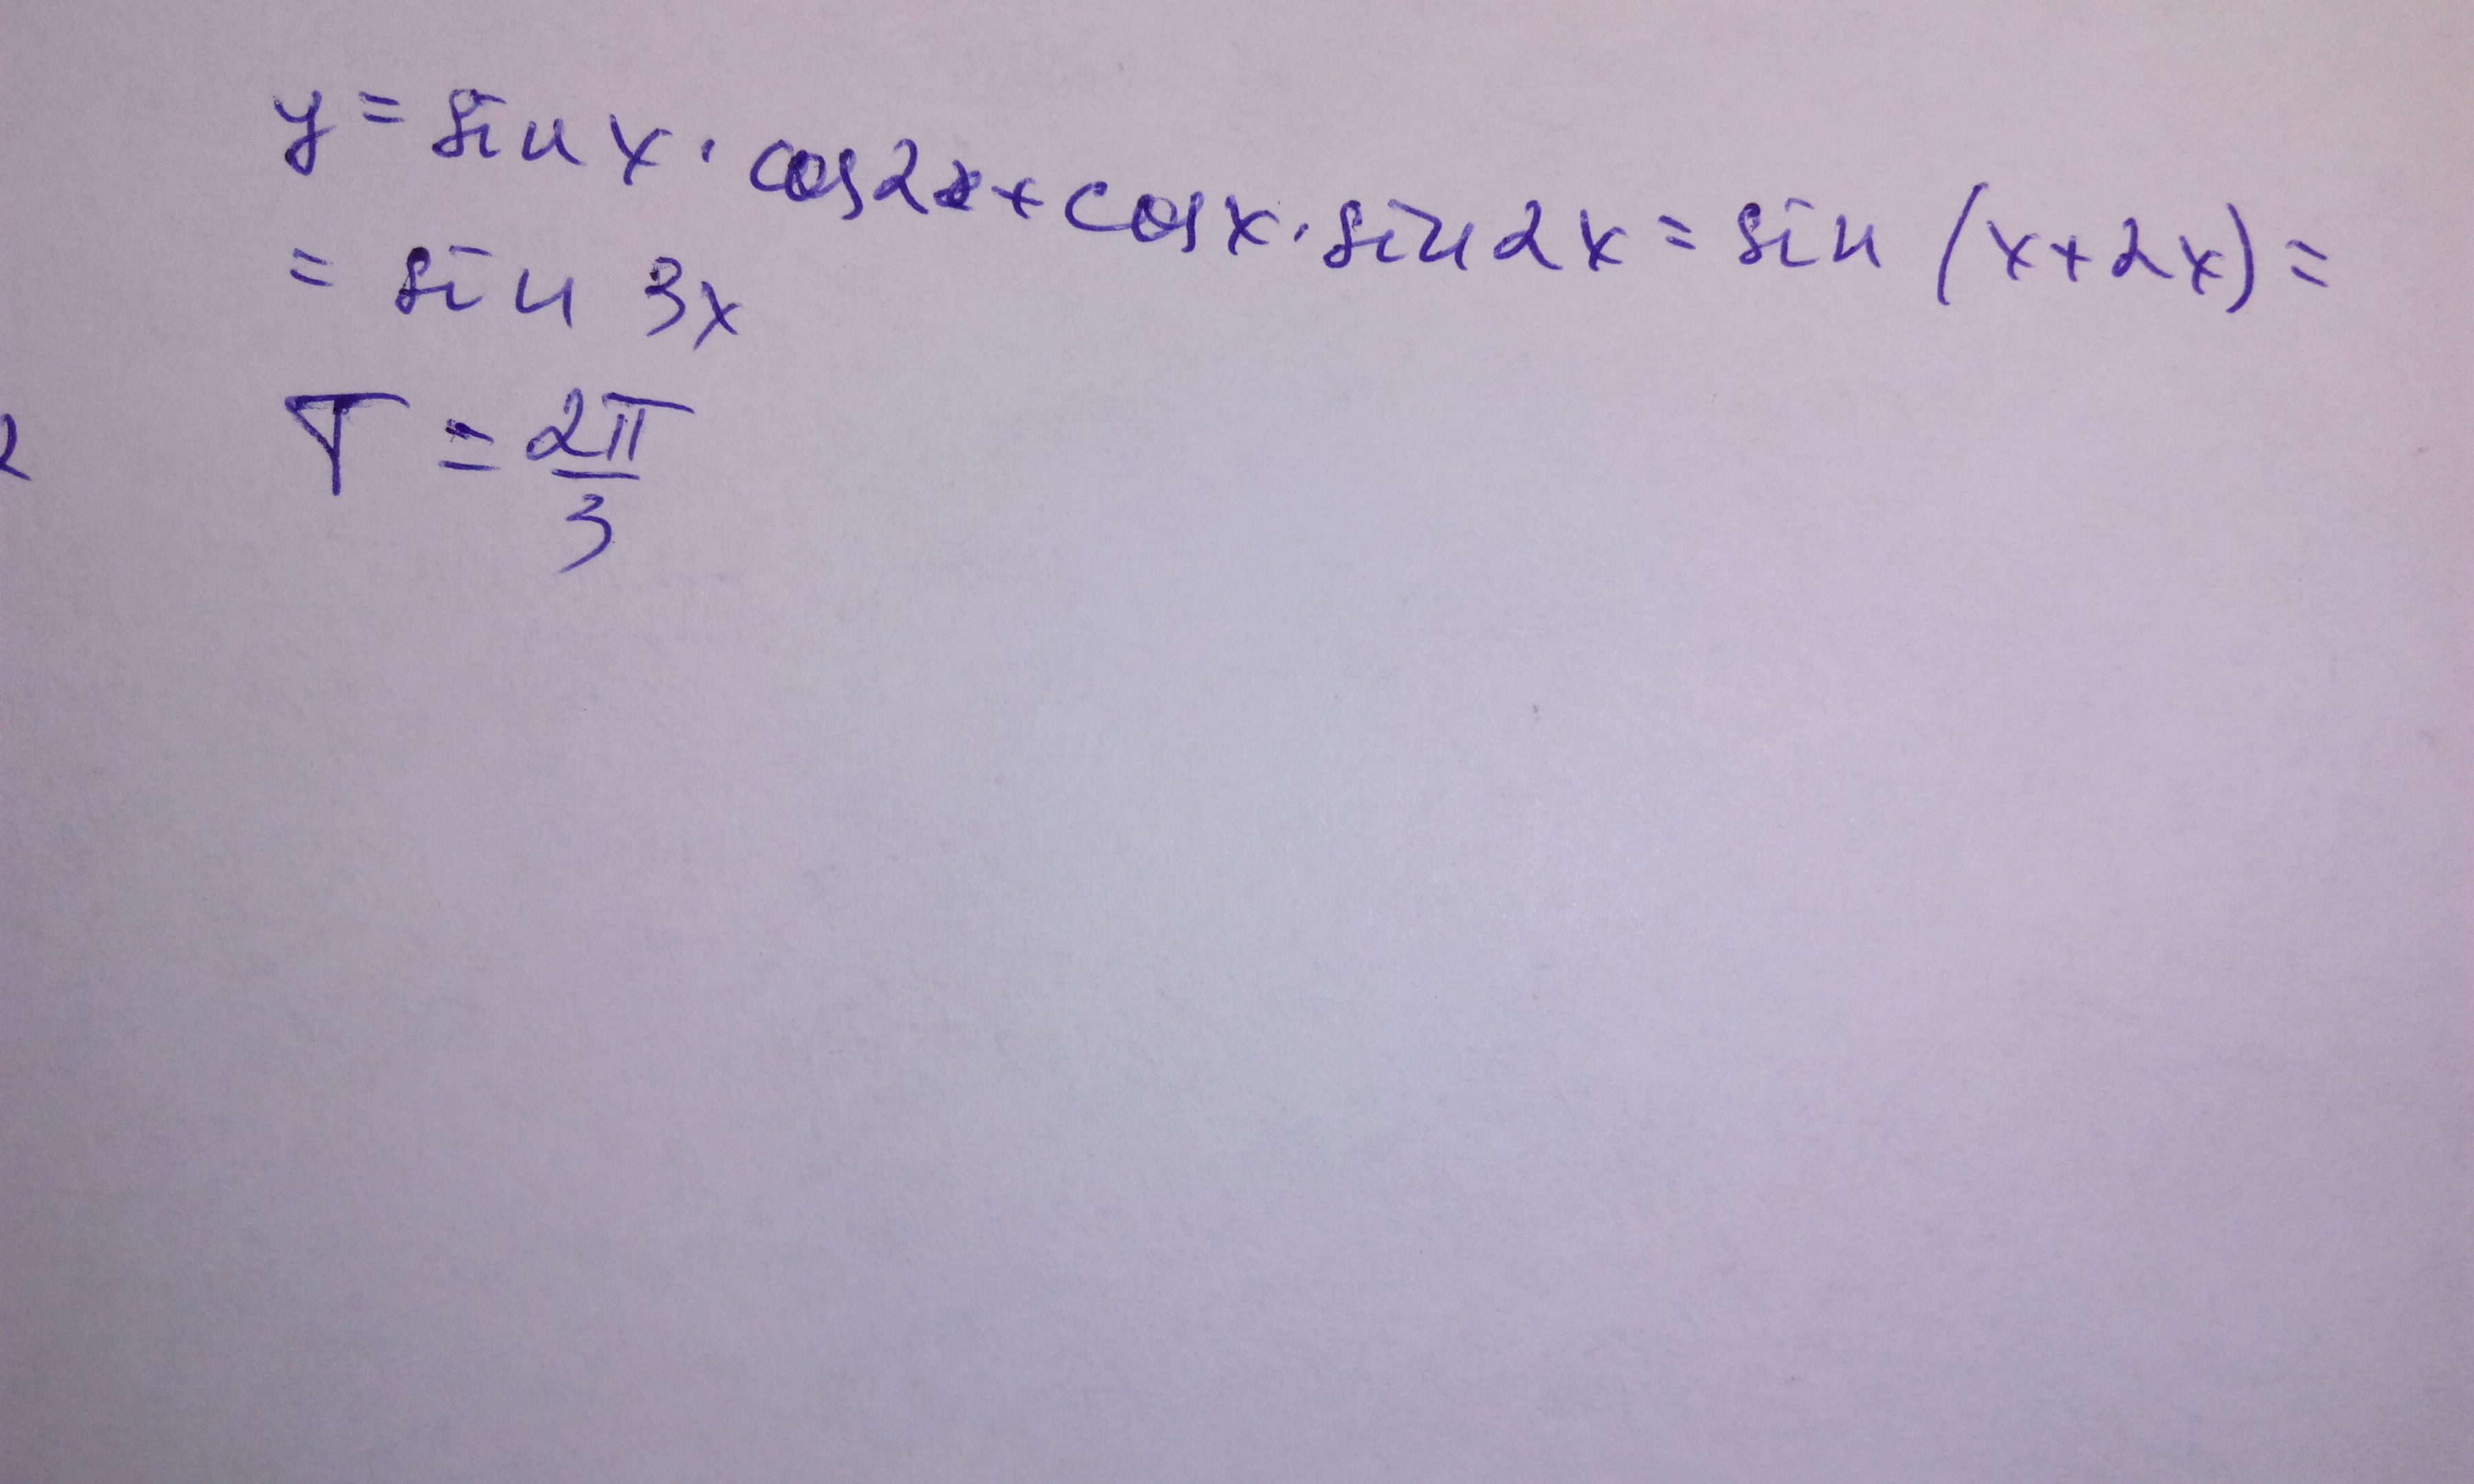 y = sin x · cos2x + cosx · sin 2x = sin (x+2x) =
= sin 3x
T = 2π/3
2